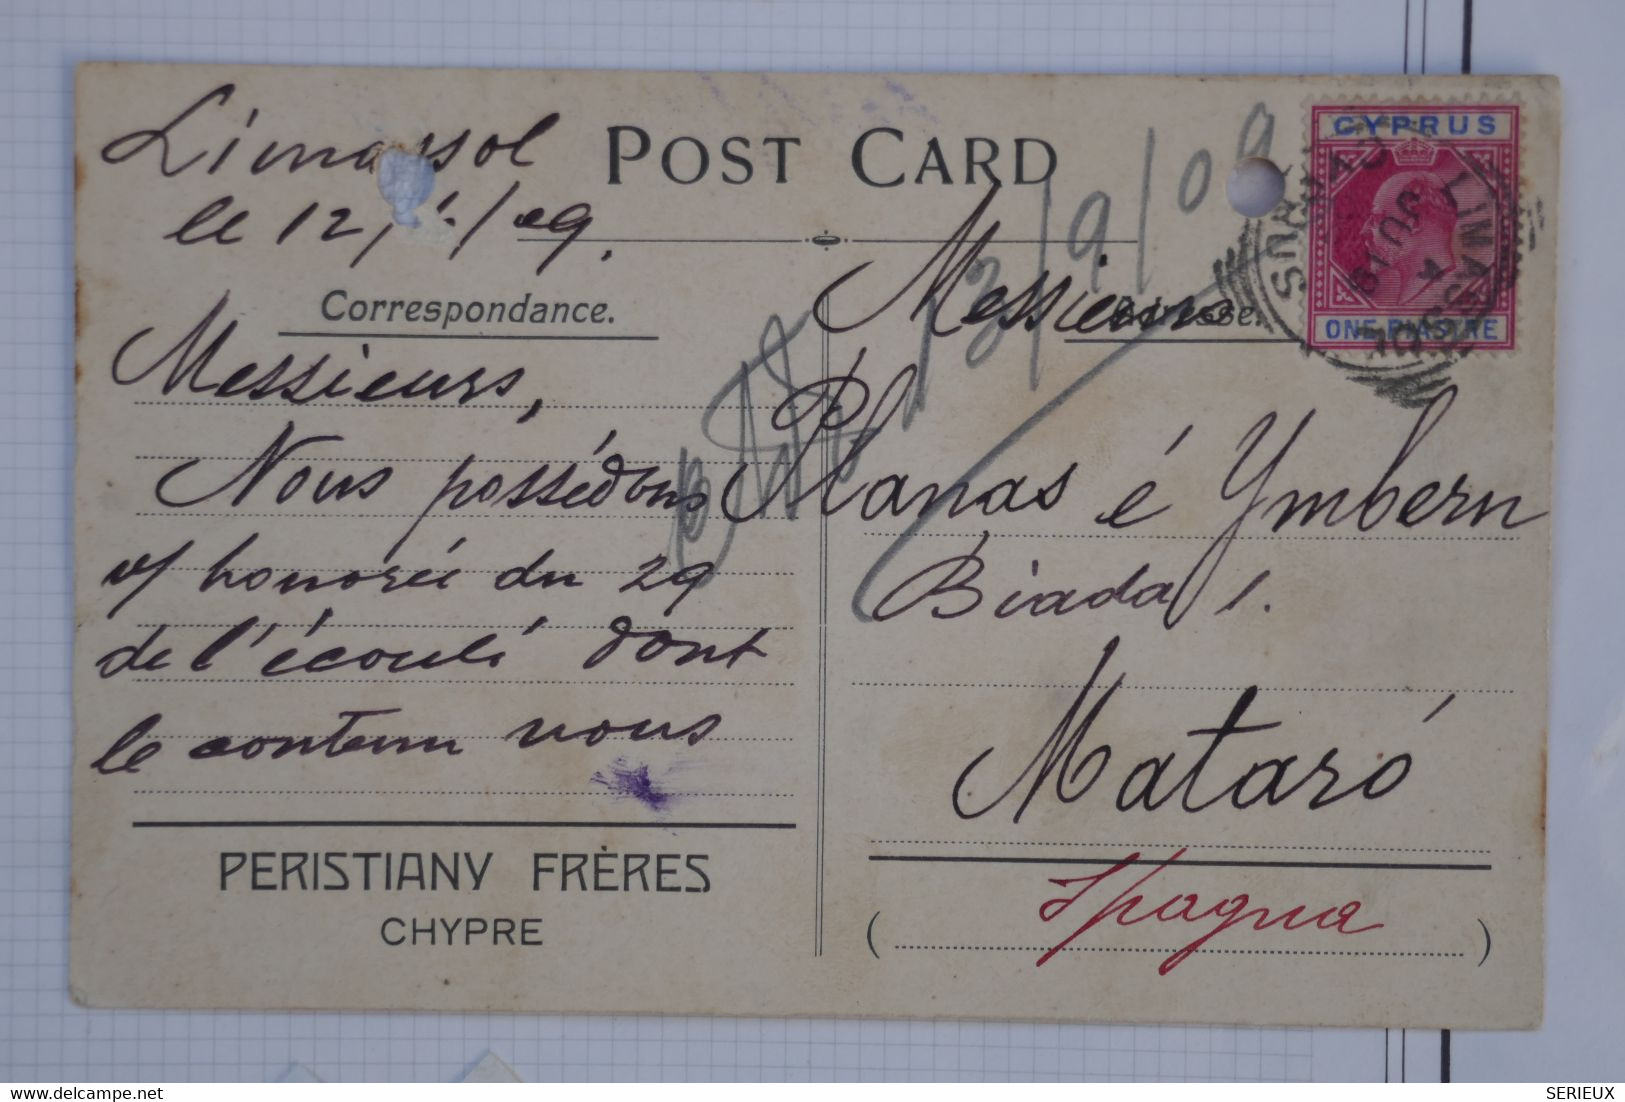 Limassol
le 12/ /09.
POST CARD
Correspondance.
Messieurs,
Nous possédons
v/ honorée du 29
de l'écoulé dont
le contenu nous
PERISTIANY FRÈRES
CHYPRE
13/9/09
Adresse.
Messieurs
Planas é Ymbern
Biada 1.
Mataró
(Spagna)
CYPRUS
ONE PIASTRE
LIMASSOL
CYPRUS
SERIEUX